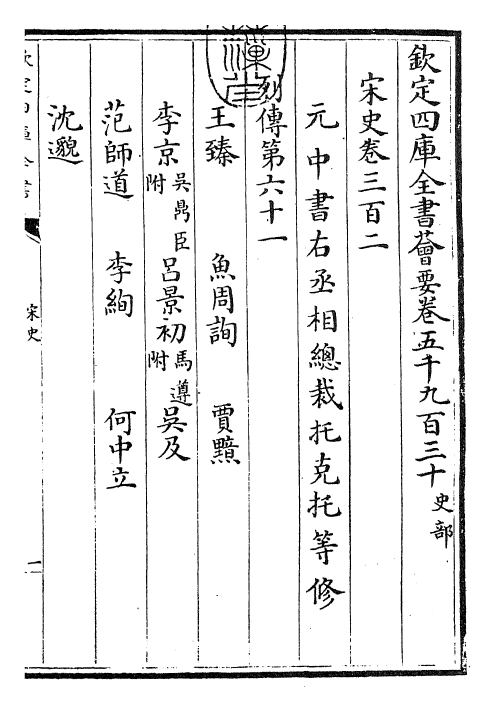 欽定四庫全書薈要卷五千九百三十 史部
宋史卷三百二
元中書右丞相總裁托克托等修
列傳第六十一
王臻 魚周詢 賈黯
李京 吳鼎臣附 呂景初 馬遵附 吳及
范師道 李絢 何中立
沈邈
宋史
一